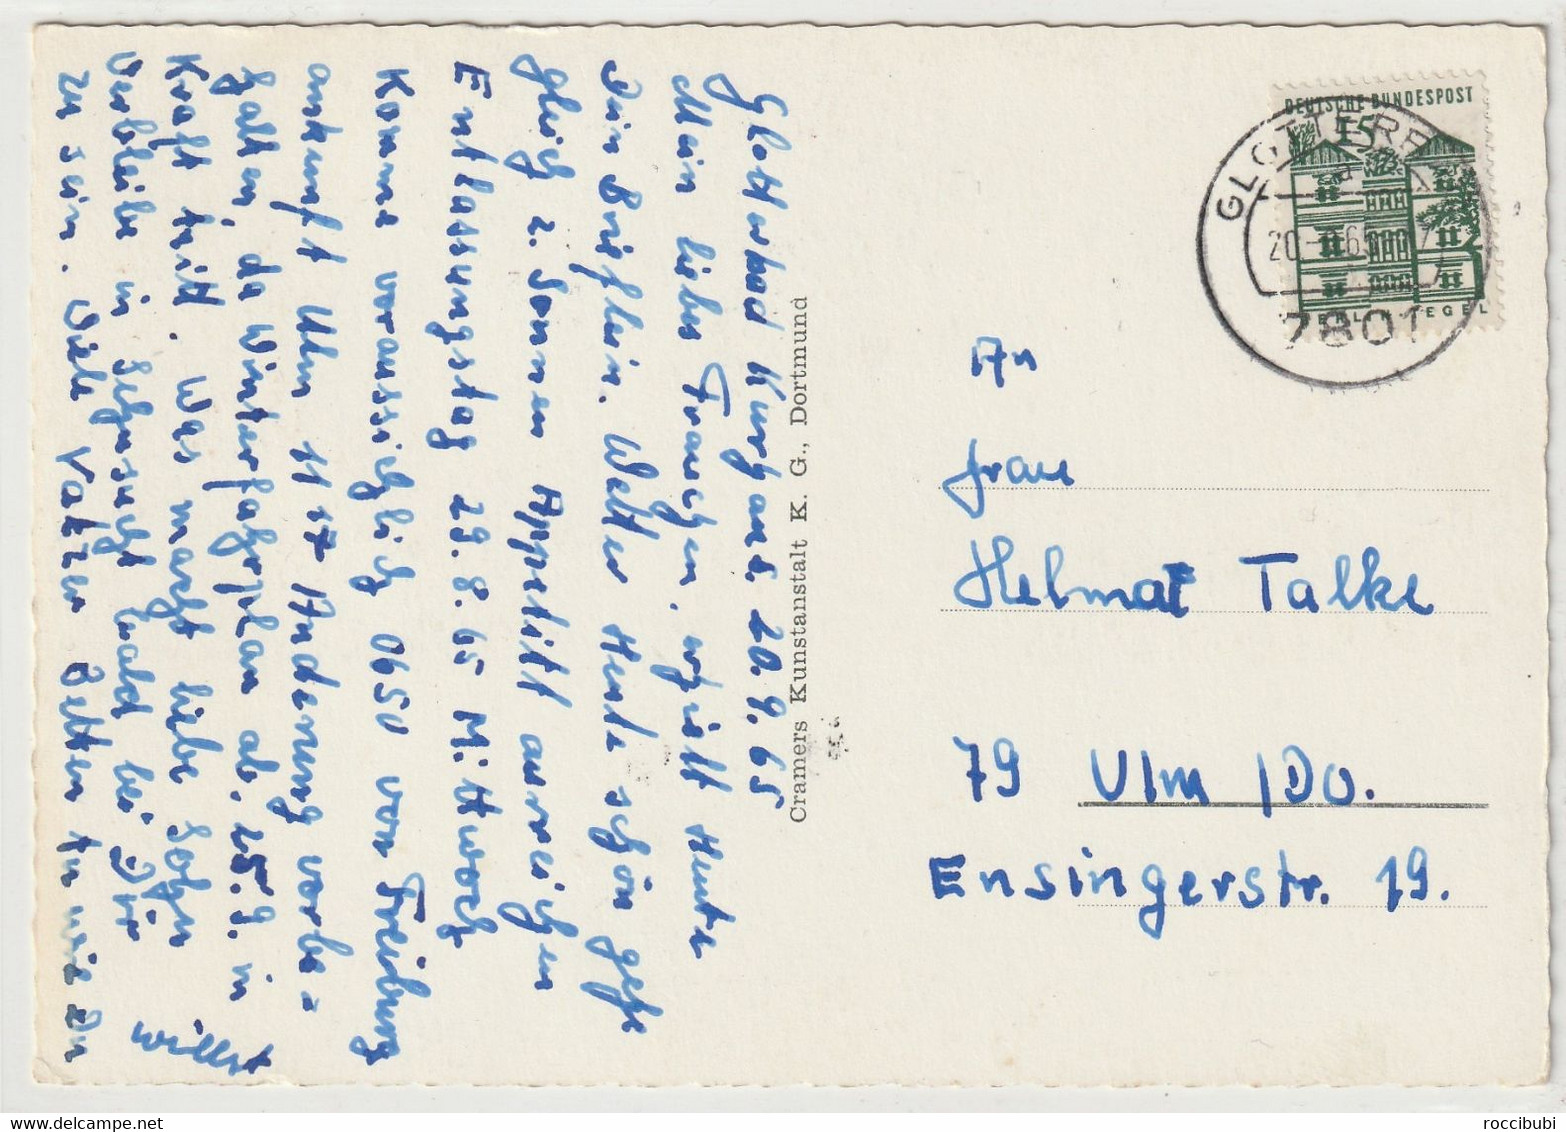 Glotterbad Kurhaus. 20.9.65
Mein liebes Frauchen, erhielt Heute
Dein Brieflein. Wetter Heute schön gehe
gleich z. Sonnen Appetitt ausreichen
Entlassungstag 29.8.65 Mittwoch
Komme voraussichlich 0650 von Freiburg
ankunft Ulm 11 17 Anderung vorbe=
halten, da Winterfahrplan ab. 25.9. in
Kraft tritt. Was macht liebe Sohn
Verbleibe in Sehnsucht bald bei Dir
zu sein. Viele Betten tu wie Du
willst
Cramers Kunstanstalt K. G., Dortmund
DEUTSCHE BUNDESPOST
15
TEGEL
GLOTTERBAD
20.
7801
An
Frau
Helmat Talke
79 Ulm /Do.
Ensingerstr. 19.
roccibubi